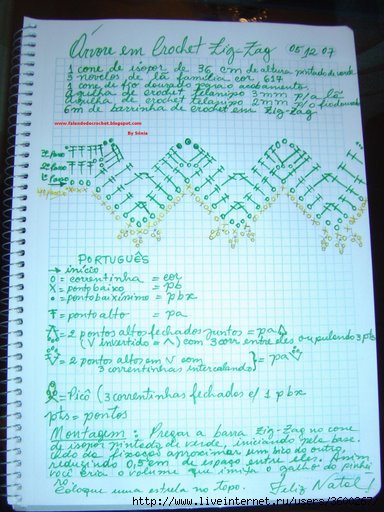 Árvore em Crochet Zig-Zag 05 12 07
1 cone de isopor de 36 cm de altura pintado de verde
3 novelos de lã família cor 614
1 cone de fio dourado para o acabamento
agulha de crochet telanipo 3 mm p/a lã
agulha de crochet telanipo 2 mm p/o fio dourado
6 m de barrinha de crochet em zig-zag
www.falandodecrochet.blogspot.com
By Sônia
PORTUGUÊS
início
0 = correntinha = cor
X = ponto baixo = pb
• = ponto baixíssimo = pbx
= ponto alto = pa
= 2 pontos altos fechados juntos = pa
(V invertido = Λ) com 3 corr entre eles ou pulando 3 pts
= 2 pontos altos em V com = pa
3 correntinhas intercalando
= Picô (3 correntinhas fechados c/ 1 pbx
pts = pontos
Montagem : Pregar a barra Zig-Zag no cone
de isopor pintado de verde, iniciando pela base.
reduzindo 0,5 cm de espaço entre eles. Assim
você cria o volume que imita o galho do pinhei
ro.
Coloque uma estrela no topo. Feliz Natal!
http://www.liveinternet.ru/users/3600267